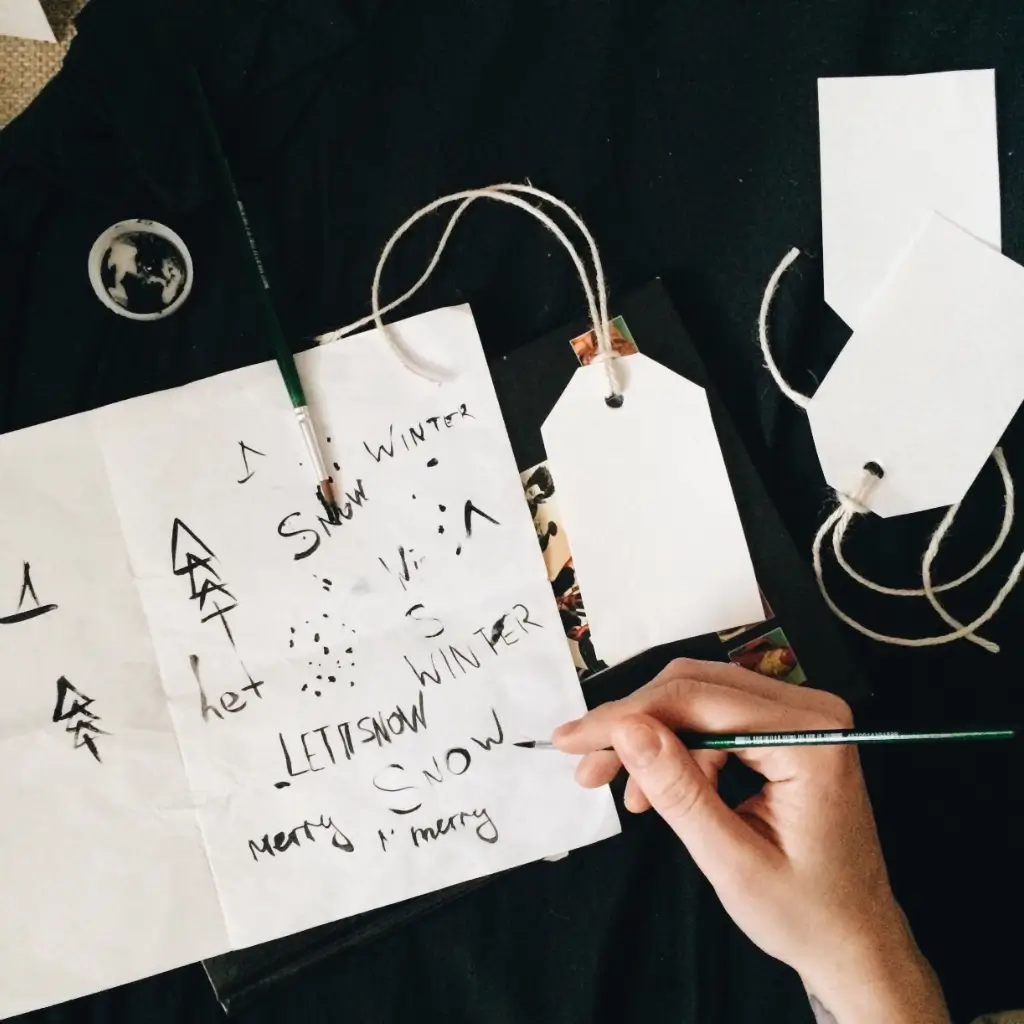 WINTER
SNOW
Wi
S
WINTER
let
LET IT SNOW
SNOW
merry merry